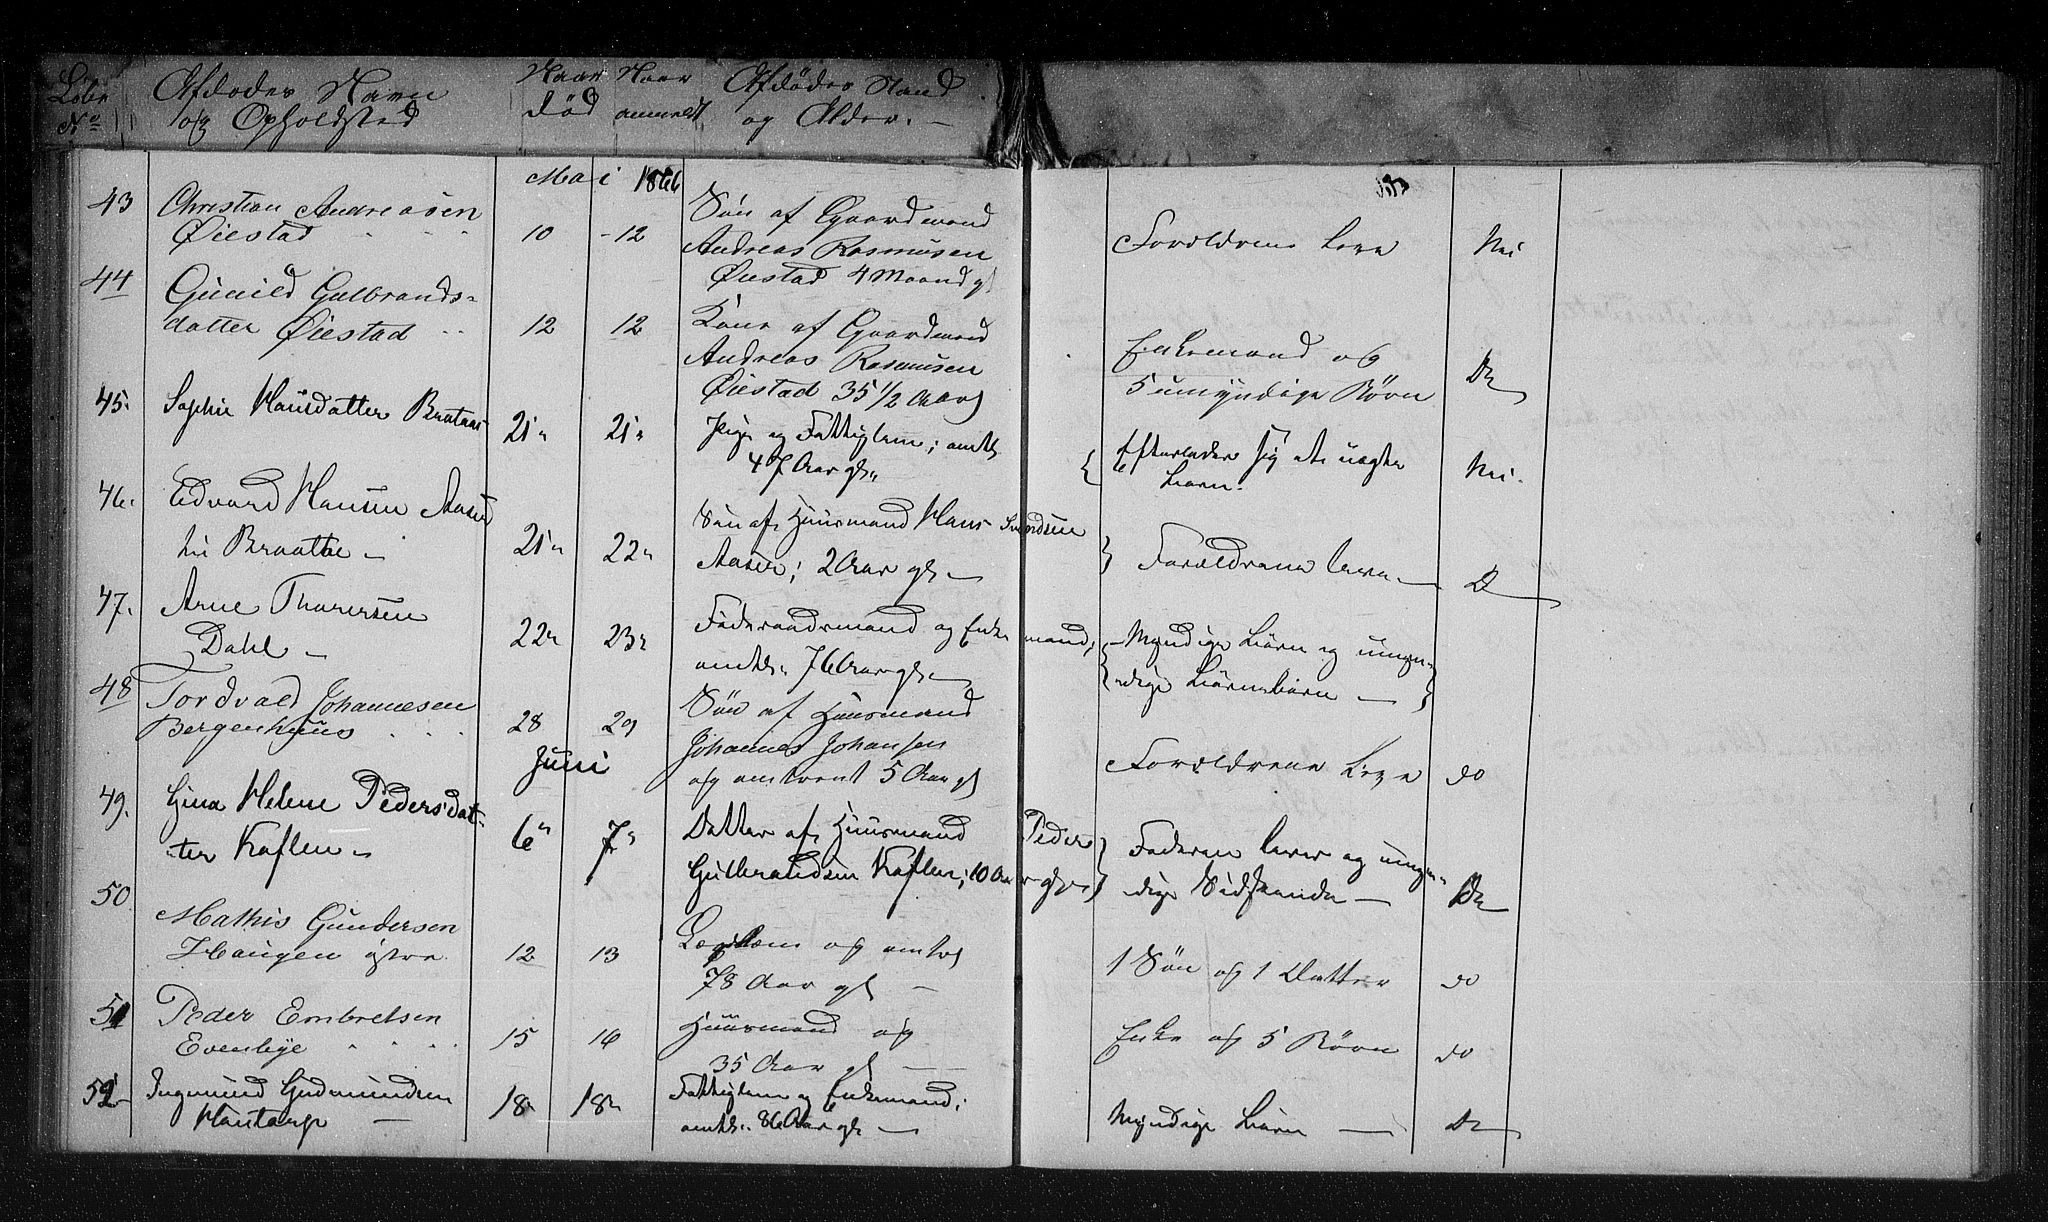 Løbe No
Afdødes Navn
og Opholdsted
Naar død
Naar anmeldt
Afdødes Stand
og Alder. —
Mai 1866
43 Christian Andreasen
Øiestad 10 12
Søn af Gaardmand
Andreas Rasmusen
Øiestad 4 Maand gl
Forældrene leve Nei
44 Gunild Gulbrands-
datter Øiestad 12 12
Kone af Gaardmand
Andreas Rasmusen
Øiestad 35 1/2 Aar gl
Enkemand og
5 umyndige Børn Do
45. Sophie Hansdatter Braaten 21 21
Pige og Fattiglem; omtr
47 Aar gl.
Efterlader sig et uægte
Barn. Nei.
46. Edvard Hansen Aasen
Braathe — 21 22
Søn af Huusmand Hans
Aasen; 2 Aar gl —
Forældrene leve — Do
47. Arne Thoresen
Dahl — 22 23
Føderaadsmand og Enkemand;
omtr. 76 Aar gl. —
Myndige Børn og umyn-
dige Børnebørn —
48 Tordvald Johannesen
Bergenhuus 28 29
Søn af Huusmand
Johannes Johansen
og omtrent 5 Aar gl
Forældrene leve do
Juni
49. Gina Helene Pedersdat-
ter Kaflen — 6 7
Datter af Huusmand Peder
Gulbrandsen Kaflen; 10 Aar gl.
Faderen lever og umyn-
dige Sødskende — Do
50 Mathis Gundersen
Haugen østre 12 13
Lægdlem og omtr
78 Aar gl —
1 Søn og 1 Datter do
51 Peder Embretsen
Evenbye 15 16
Huusmand og
35 Aar gl —
Enke og 5 Børn do
52 Ingemund Gudmundsen
— 18 18
Fattiglem og Enkemand;
omtr. 86 Aar gl —
Myndige Børn — Do